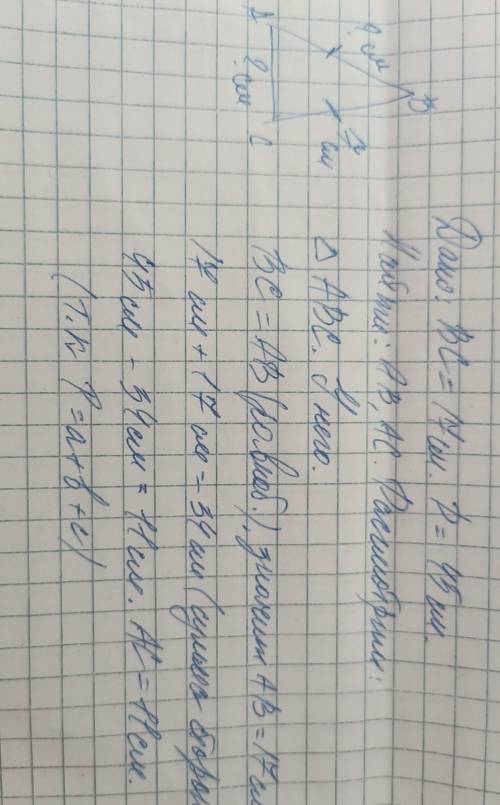 B
? см
17 см
A
? см
C
Дано: BC = 17 см. P = 45 см.
Найти: AB, AC. Рассмотрим:
△ ABC. У него:
BC = AB (равноб.), значит AB = 17 см
17 см + 17 см = 34 см (сумма сторон
45 см - 34 см = 11 см. AC = 11 см.
(т.к P = a + b + c)